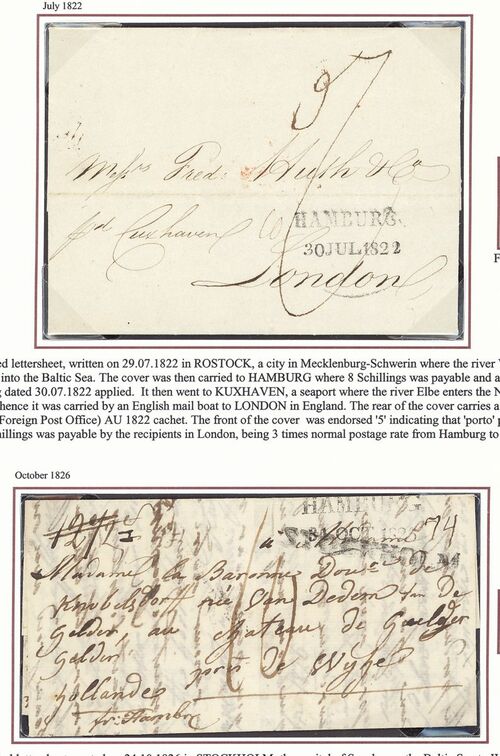 July 1822
Mess^rs Fred: Huth & Co
p^d Cuxhaven
HAMBURG
30 JUL 1822
London
F
ed lettersheet, written on 29.07.1822 in ROSTOCK, a city in Mecklenburg-Schwerin where the river
into the Baltic Sea. The cover was then carried to HAMBURG where 8 Schillings was payable and a
g dated 30.07.1822 applied. It then went to KUXHAVEN, a seaport where the river Elbe enters the N
hence it was carried by an English mail boat to LONDON in England. The rear of the cover carries a
(Foreign Post Office) AU 1822 cachet. The front of the cover was endorsed '5' indicating that 'porto' p
hillings was payable by the recipients in London, being 3 times normal postage rate from Hamburg to
October 1826
HAMBURG
31 OCT. 182
STOCKHOLM
74
Madame la Baronne Dou^re de
Knobelsdorff née van Dedem van de
Gelder, au chateau de Gelder
Gelder près de Wyhe
hollande
fr: Hambr